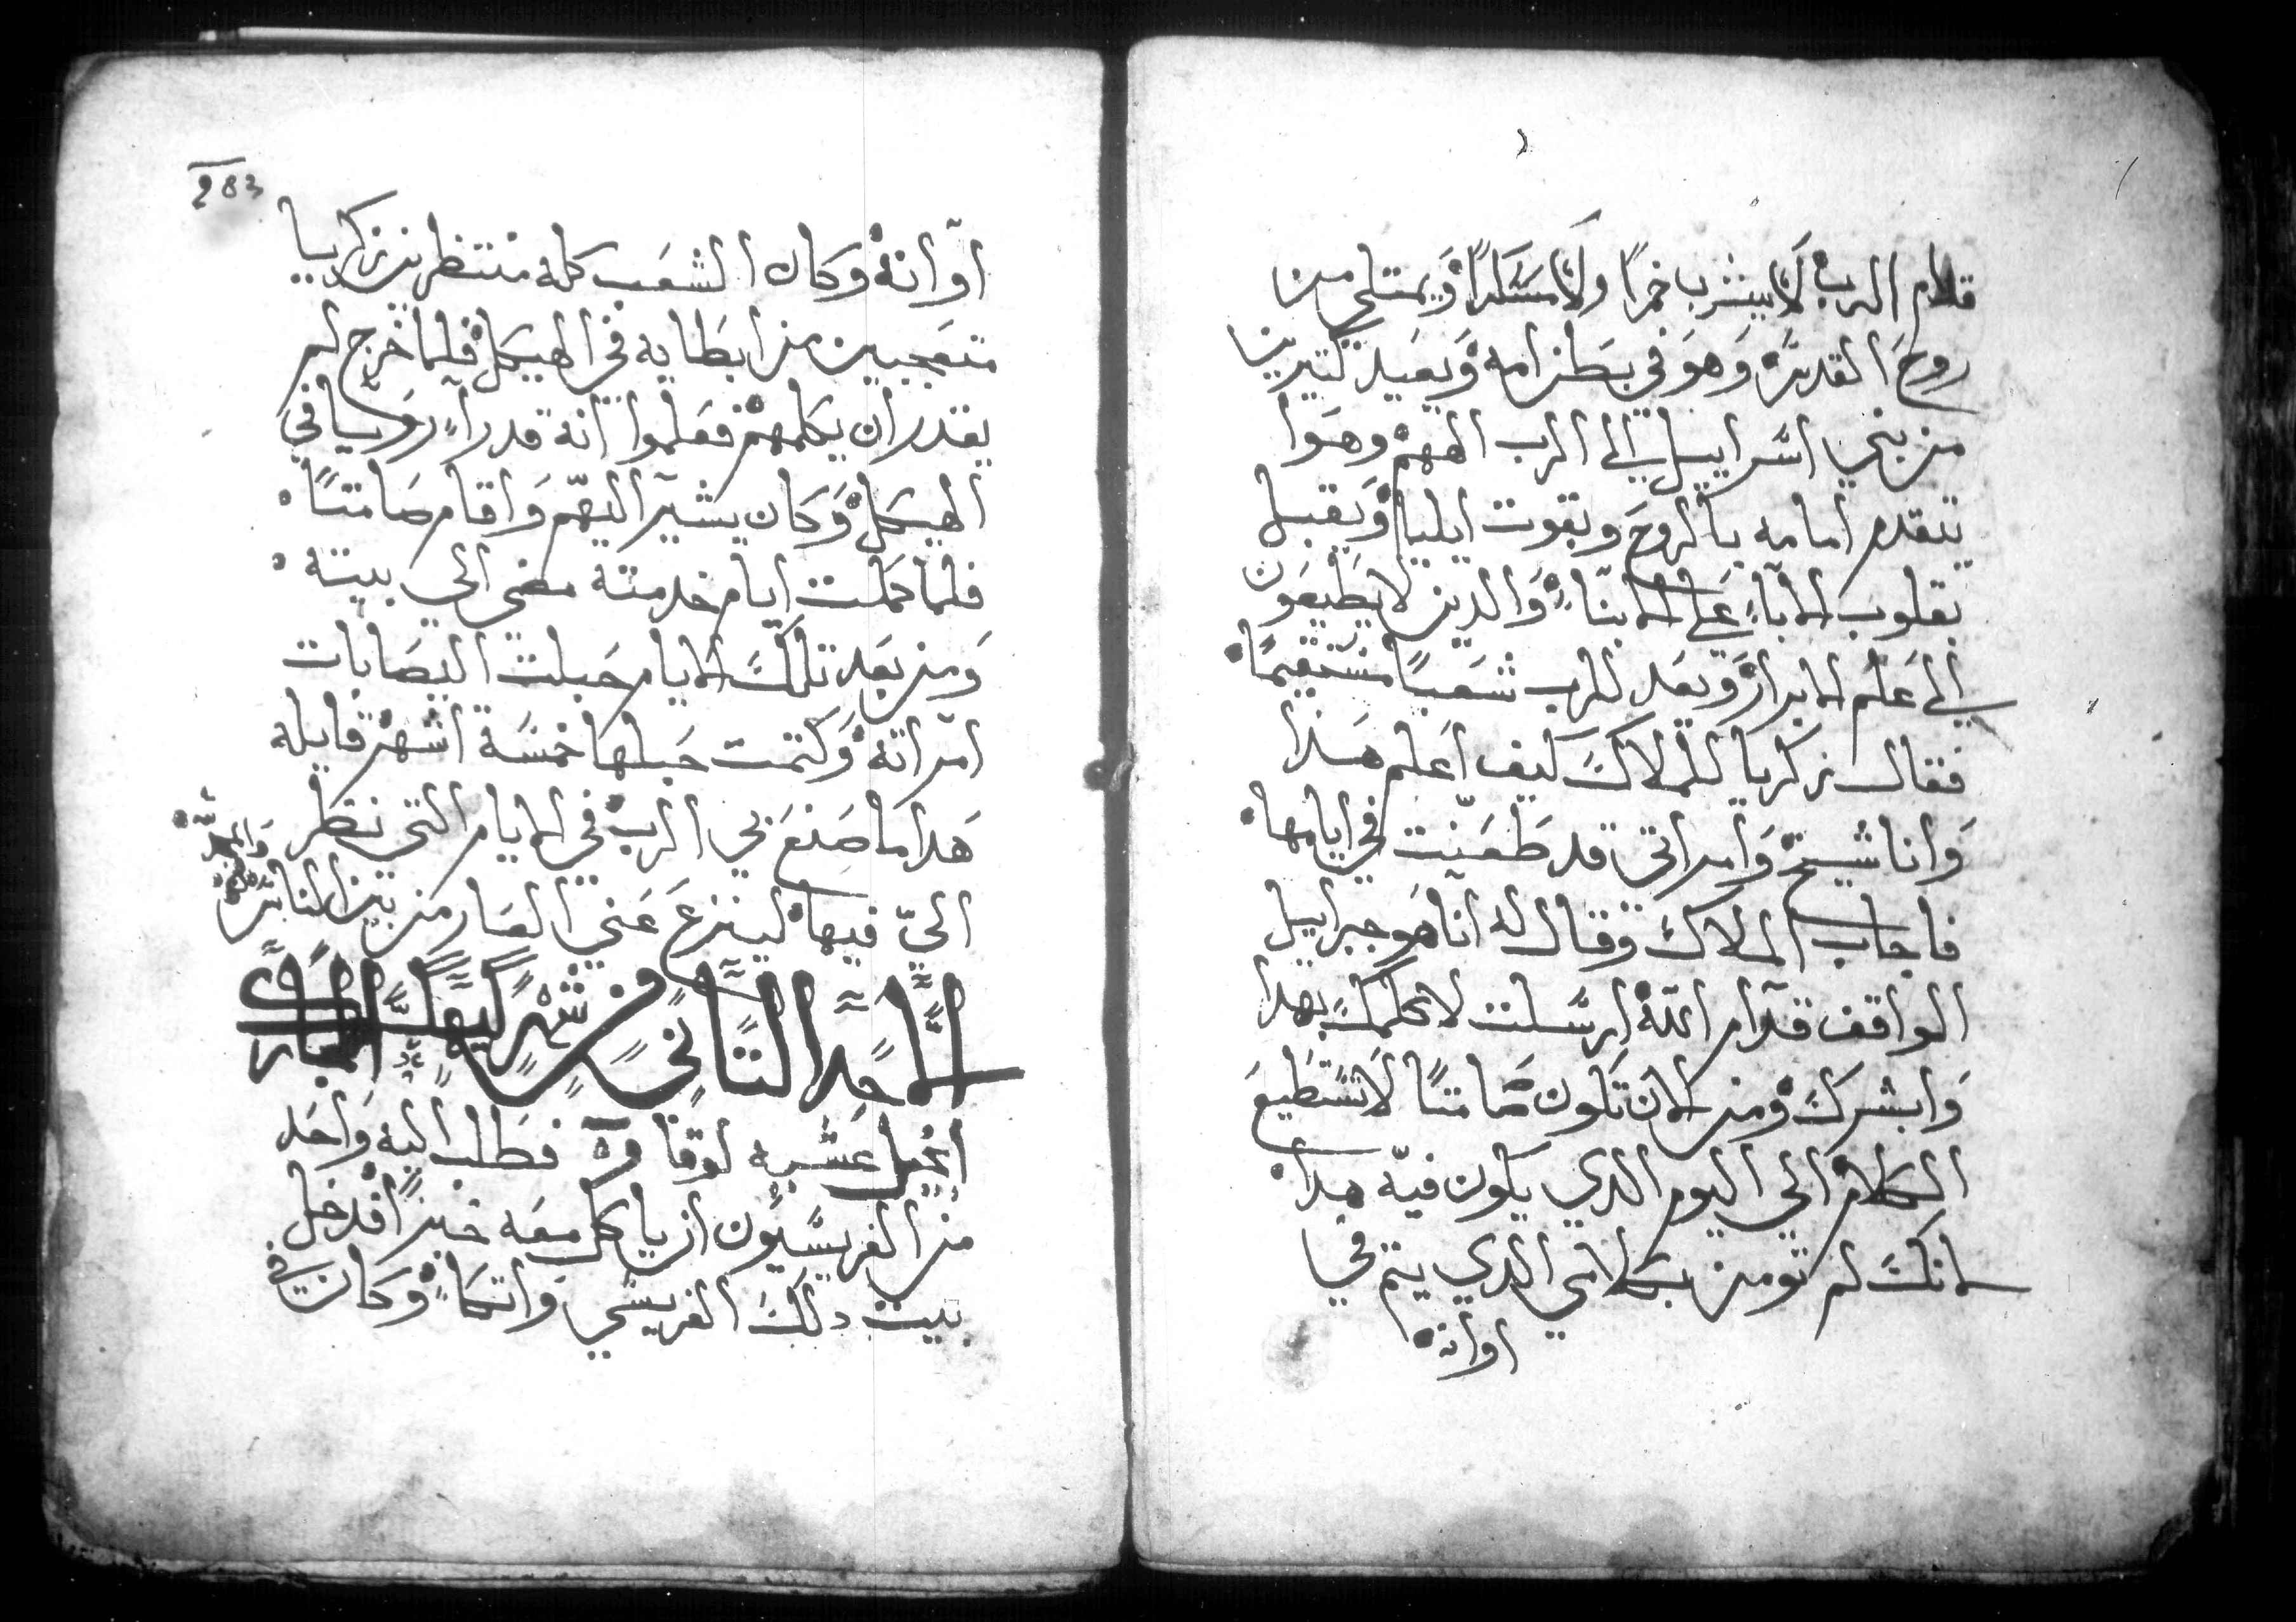 قدام الرب لا يشرب خمرًا ولا مسكرًا ويمتلي من
روح القدس وهو في بطن امه ويعيد كتيرين
من بني اسراييل الي الرب الههم وهوا
يتقدم امامه بالروح وبقوت ايليا ويقبل
بقلوب الاباء علي الابناء والدين لا يطيعون
الي علم الابرار ويعد للرب شعبًا مستقيمًا
فقال زكريا للملاك كيف اعلم هدا
وانا شيخ وامراتي قد طعنت في ايامها
فاجاب الملاك وقال له انا هو جبراييل
الواقف قدام الله ارسلت لاكلمك بهدا
وابشرك ومن الان تكون صامتًا لا تستطيع
الكلام الي اليوم الدي يكون فيه هدا
لانك لم تومن بكلامي الدي يتم في
اوانه
283
اوانه وكان الشعب كله منتظرين زكريا
متعجبين من ابطايه في الهيكل فلما خرج لم
يقدر ان يكلمهم فعلموا انه قد راء رويا في
الهيكل وكان يشير اليهم واقام صامتًا
فلما كملت ايام خدمته مضي الي بيته
ومن بعد تلك الايام حبلت اليصابات
امراته وكتمت حبلها خمسة اشهر قايله
هدا ما صنع بي الرب في الايام التي نظر
الي فيها لينزع عني العار من بين الناس
الاحد التاني من شهر كيهك المبارك
انجيل عشيه لوقا فطلب اليه واحد
من الفريسيون ان ياكل معه خبزًا فدخل
بيت دلك الفريسي واتكاء وكان في